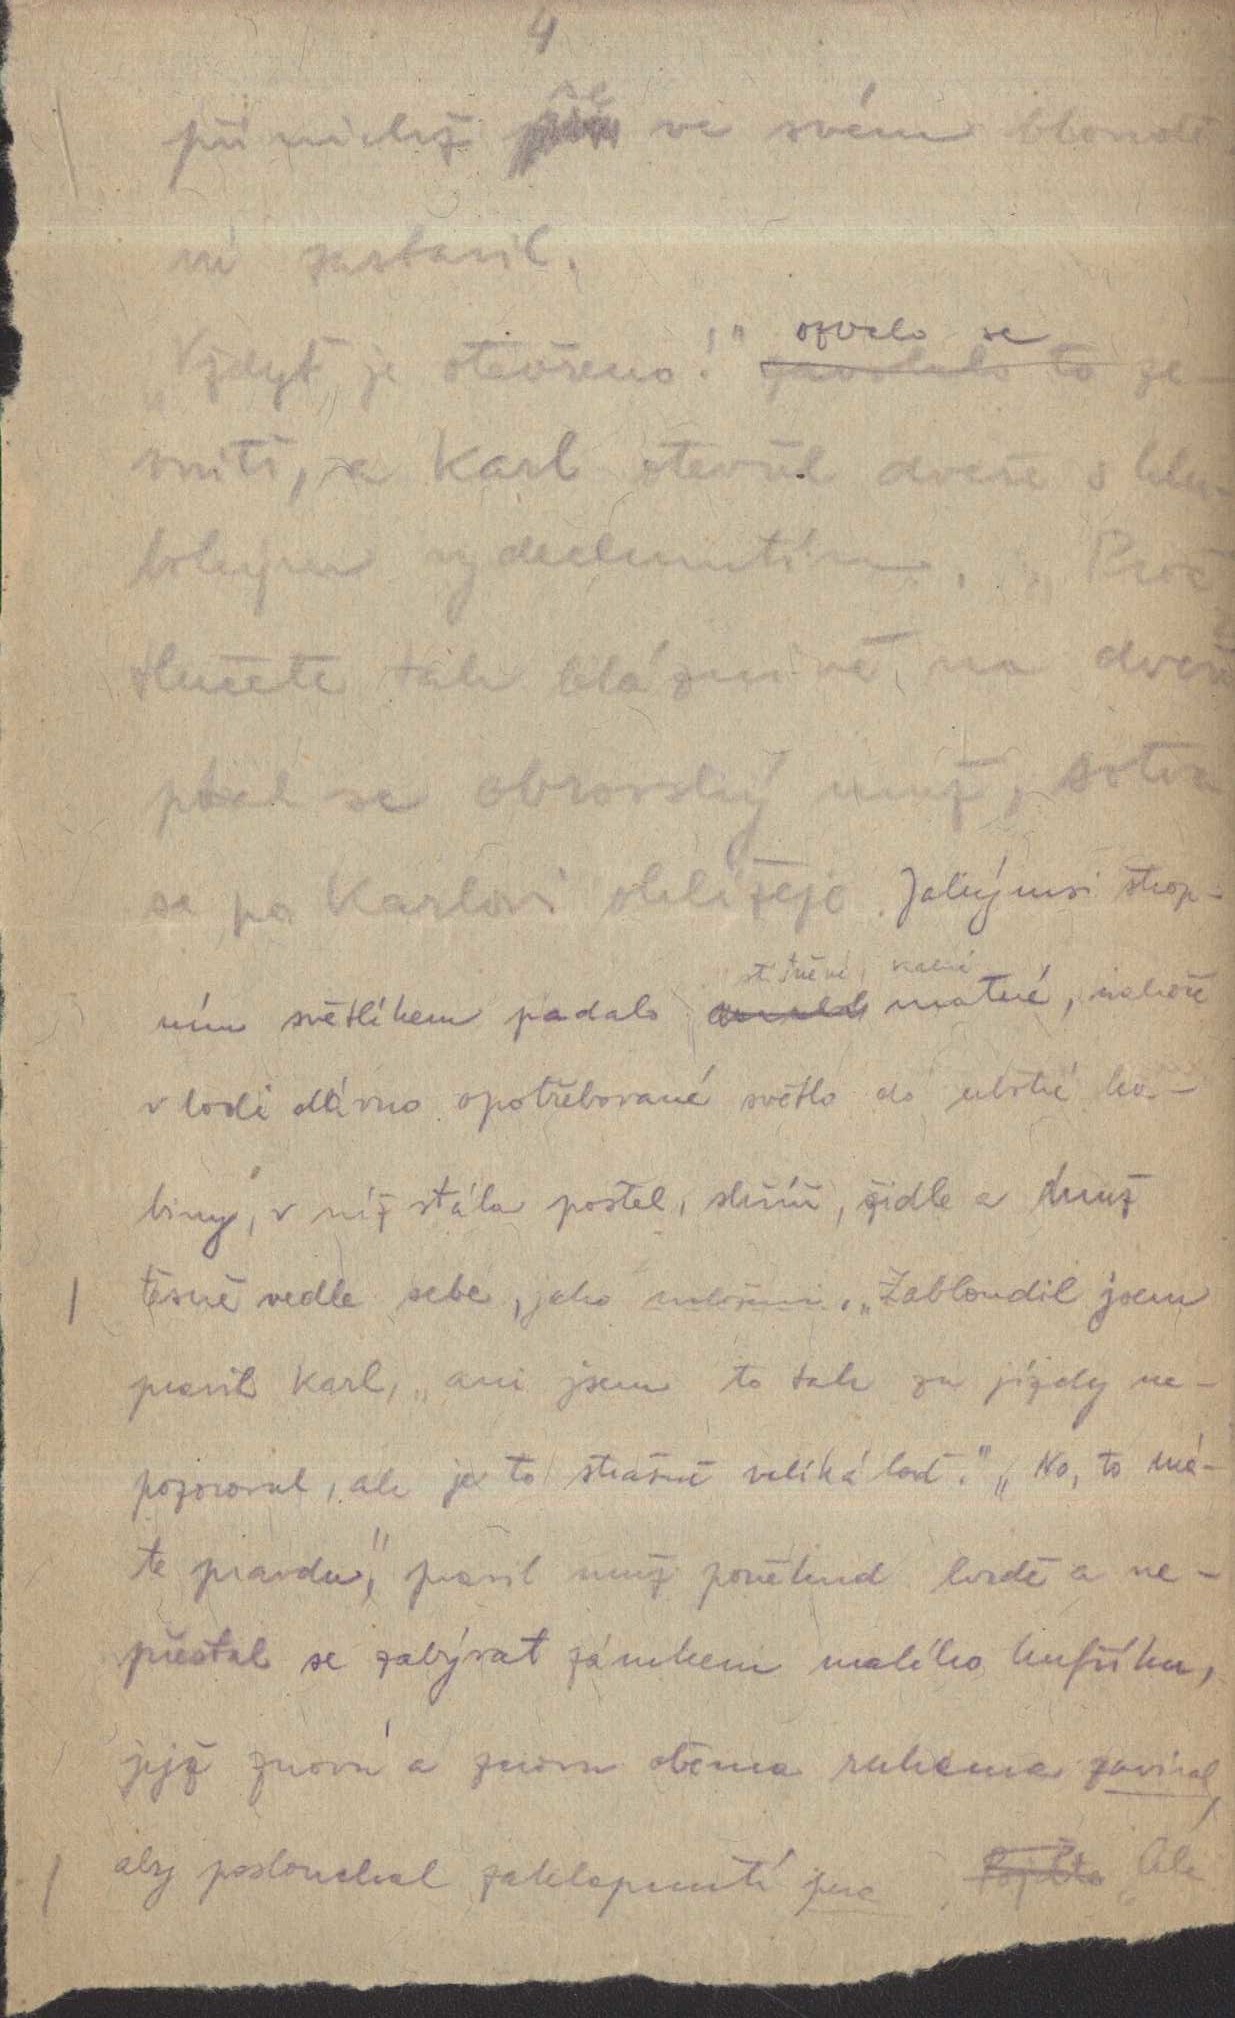 4
při nichž se ve svém bloudě-
ní zastavil.
„Vždyť je otevřeno!" ozvalo se
zavolalo to ze-
vnitř, a Karl otevřel dveře s hlu-
bokým vydechnutím. „Proč
tlučete tak bláznivě na dveře
ptal se obrovský muž, sotva
se po Karlovi ohlížeje. Jakýmsi strop-
ním světlíkem padalo matné, nahoře
v lodi dávno opotřebované světlo do ubohé ka-
biny, v níž stála postel, skříň, židle a muž
těsně vedle sebe, jako „Zabloudil jsem
pravil Karl, „ani jsem to tak za jízdy ne-
pozoroval, ale je to strašně veliká loď." „No, to má-
te pravdu," pravil muž poněkud hrdě a ne-
přestal se zabývat zámkem malého kufříku,
jejž znovu a znovu oběma rukama zavíral,
aby poslouchal zaklapnutí Pojďte Ale